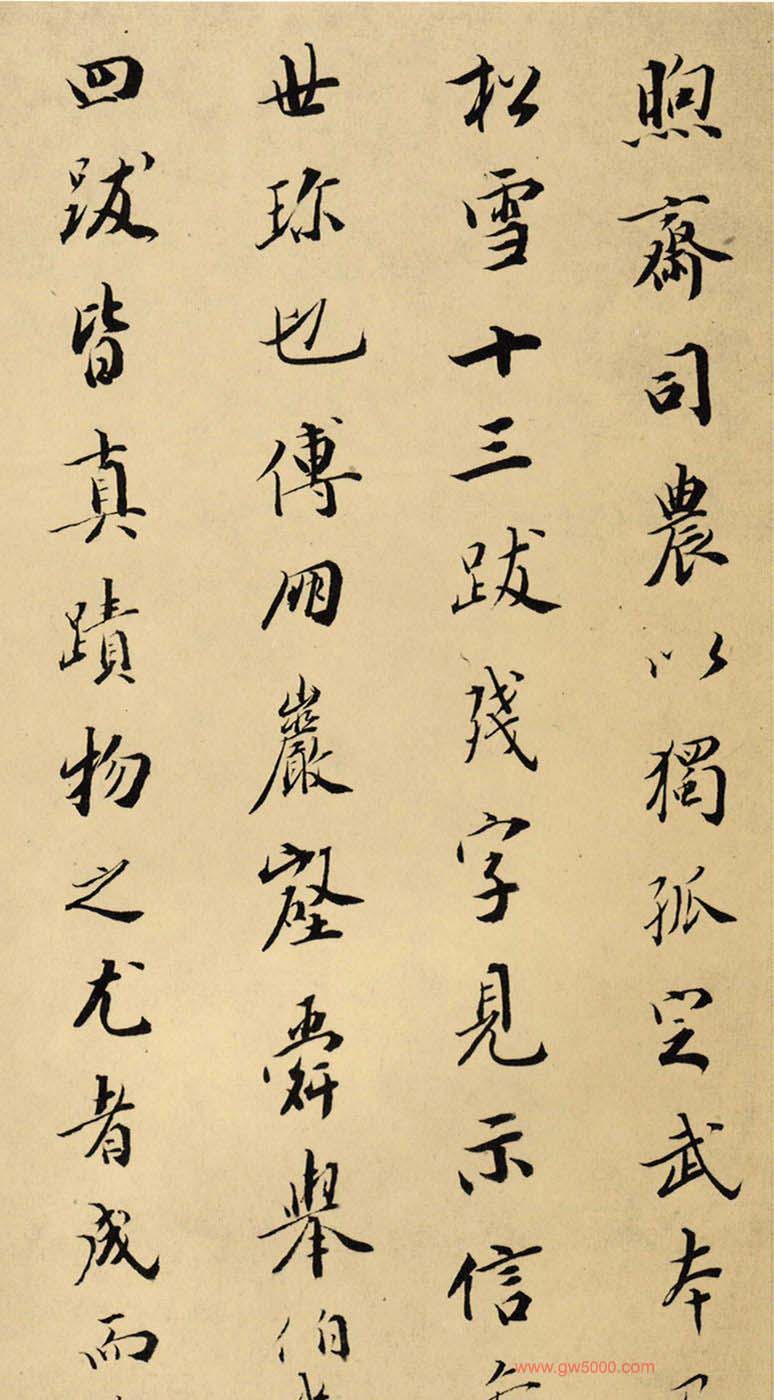 煦齋司農以獨孤定武本
松雪十三跋殘字見示信
世珎也傅朋巖壑舜舉伯
四跋皆真蹟物之尤者成而
www.gw5000.com